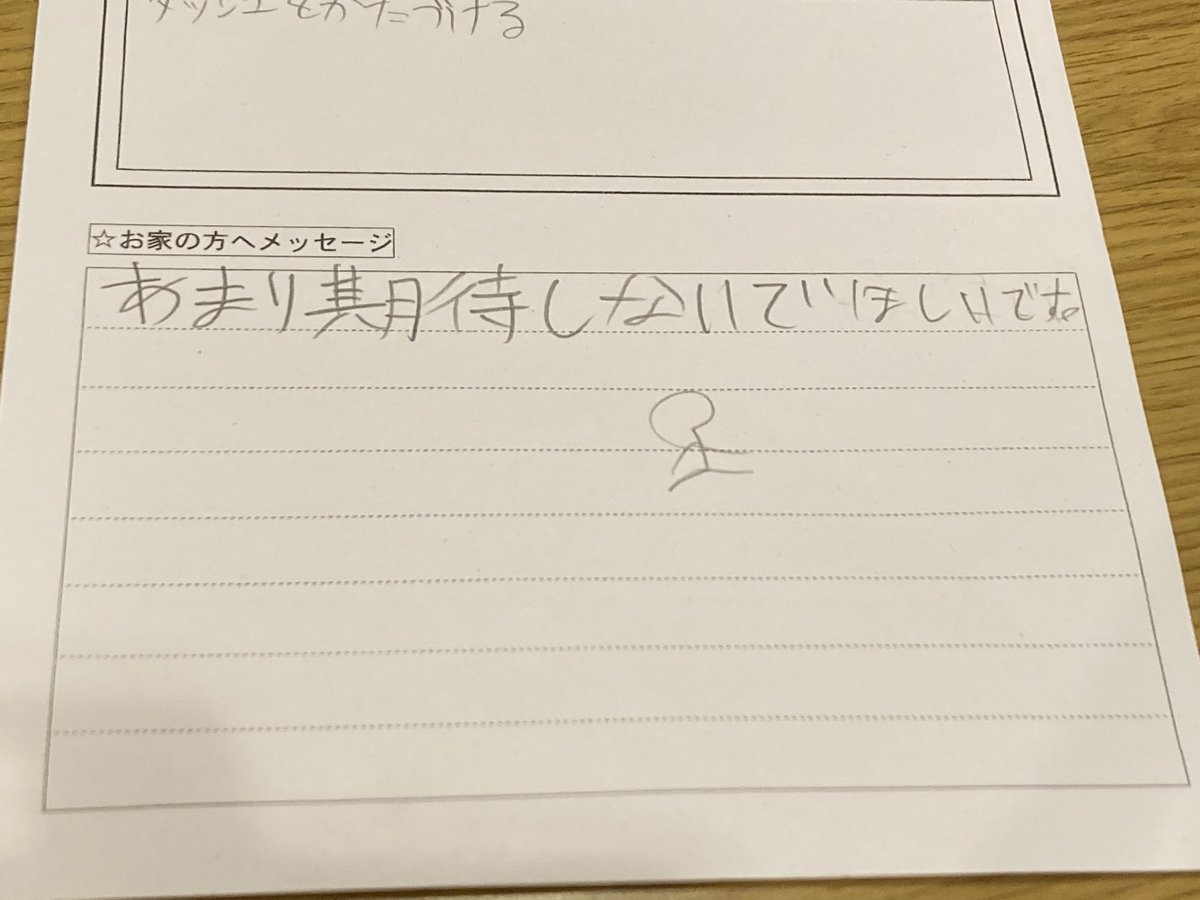 ダッシュをかたづける
☆お家の方へメッセージ
あまり期待しないでいほしいです。